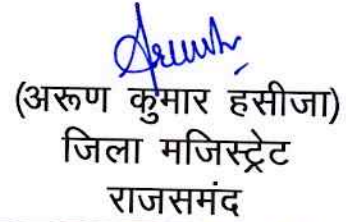 (अरूण कुमार हसीजा)
जिला मजिस्ट्रेट
राजसमंद